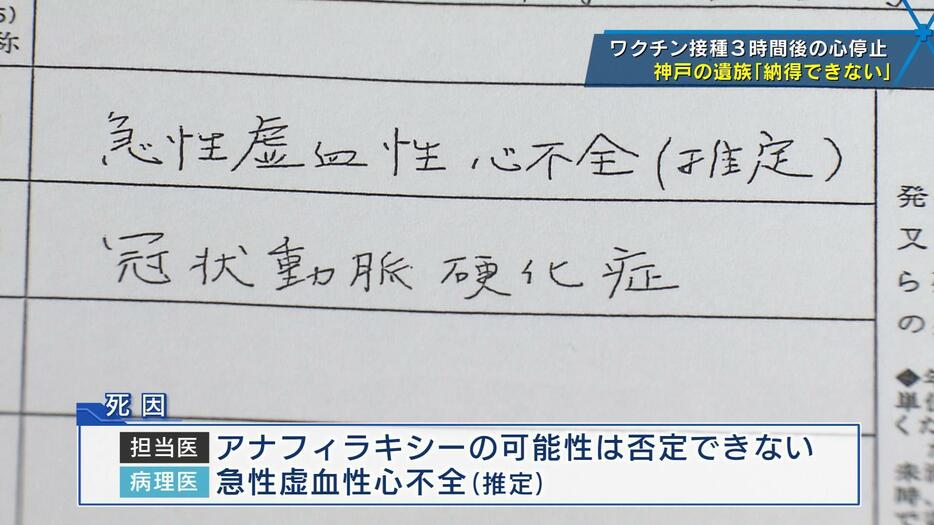 ワクチン接種3時間後の心停止
神戸の遺族｢納得できない｣
急性虚血性心不全(推定)
冠状動脈硬化症
称
発
又
ら
の
◆
単
く
未
時、
死因
担当医 アナフィラキシーの可能性は否定できない
病理医 急性虚血性心不全(推定)